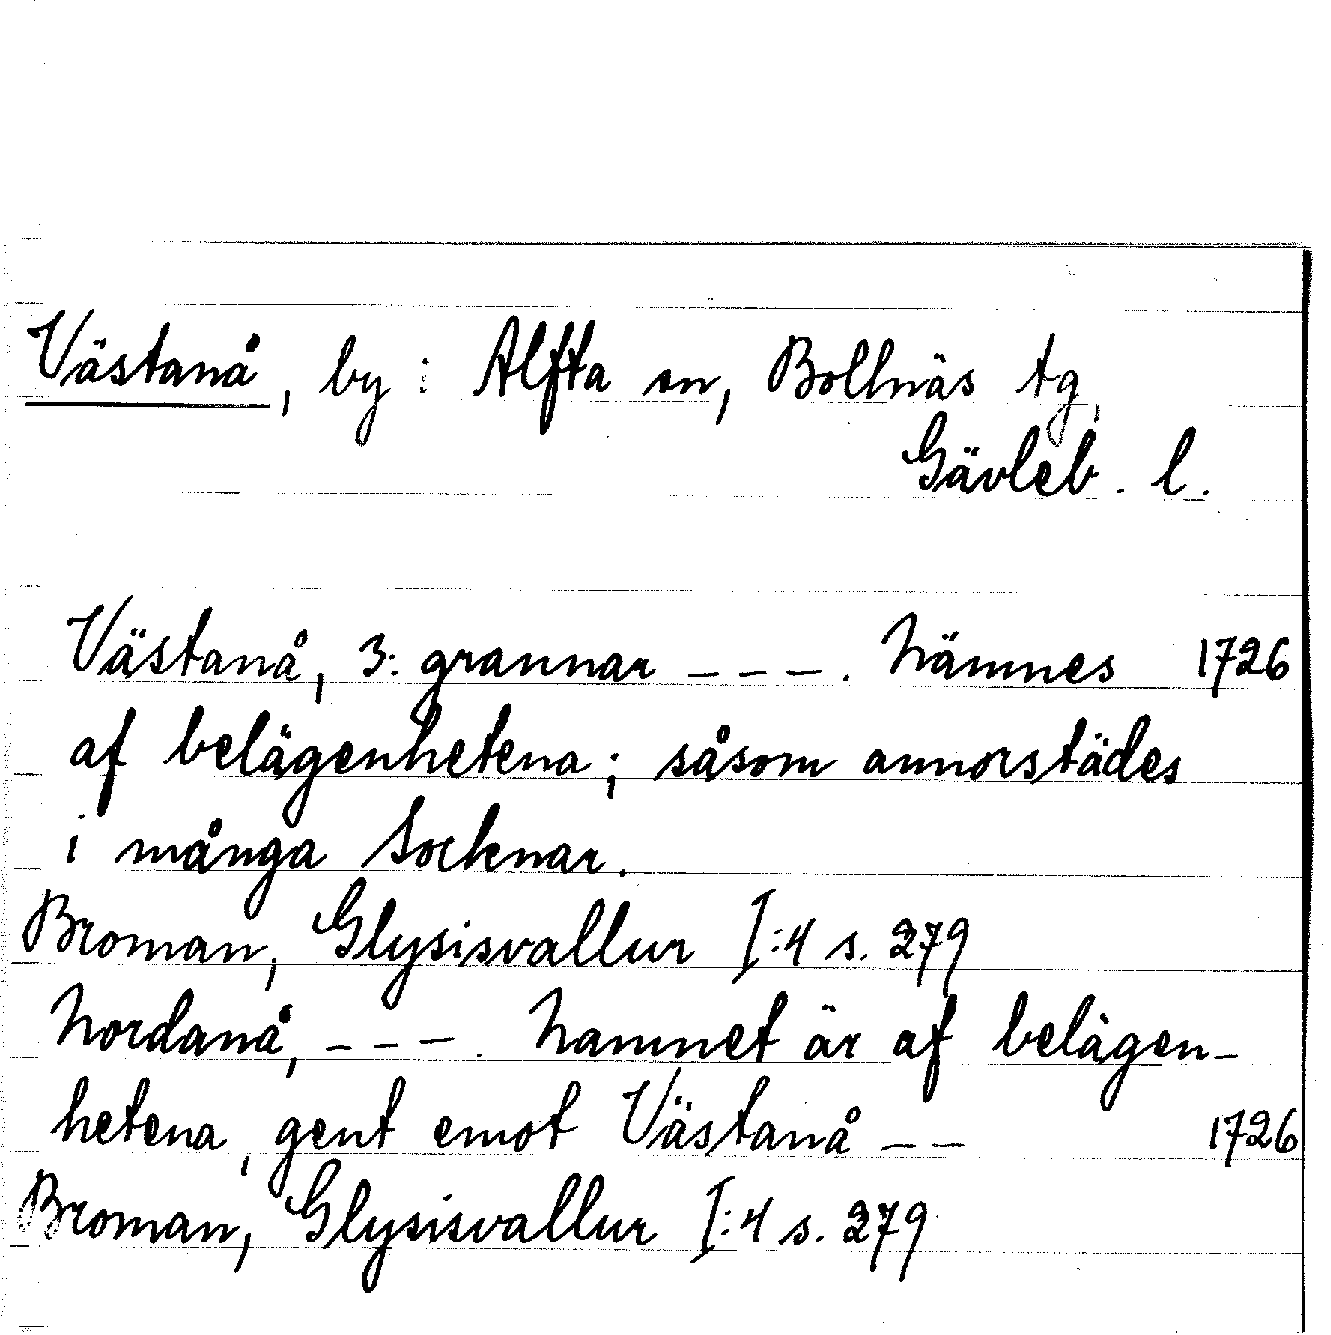 Västanå, by i Alfta sn, Bollnäs tg,
Gävleb. l.
Västanå, 3: grannar ---. Nämnes 1726
af belägenhetena; såsom annorstädes
i många Socknar.
Broman, Glysisvallur I:4 s. 279
Nordanå, ---. Namnet är af belägen-
hetena, gent emot Västanå -- 1726
Broman, Glysisvallur I:4 s. 279